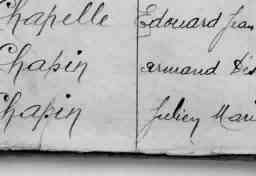 Chapelle Edouard Jean
Chapin Armand Dés
Chapin Julien Mari